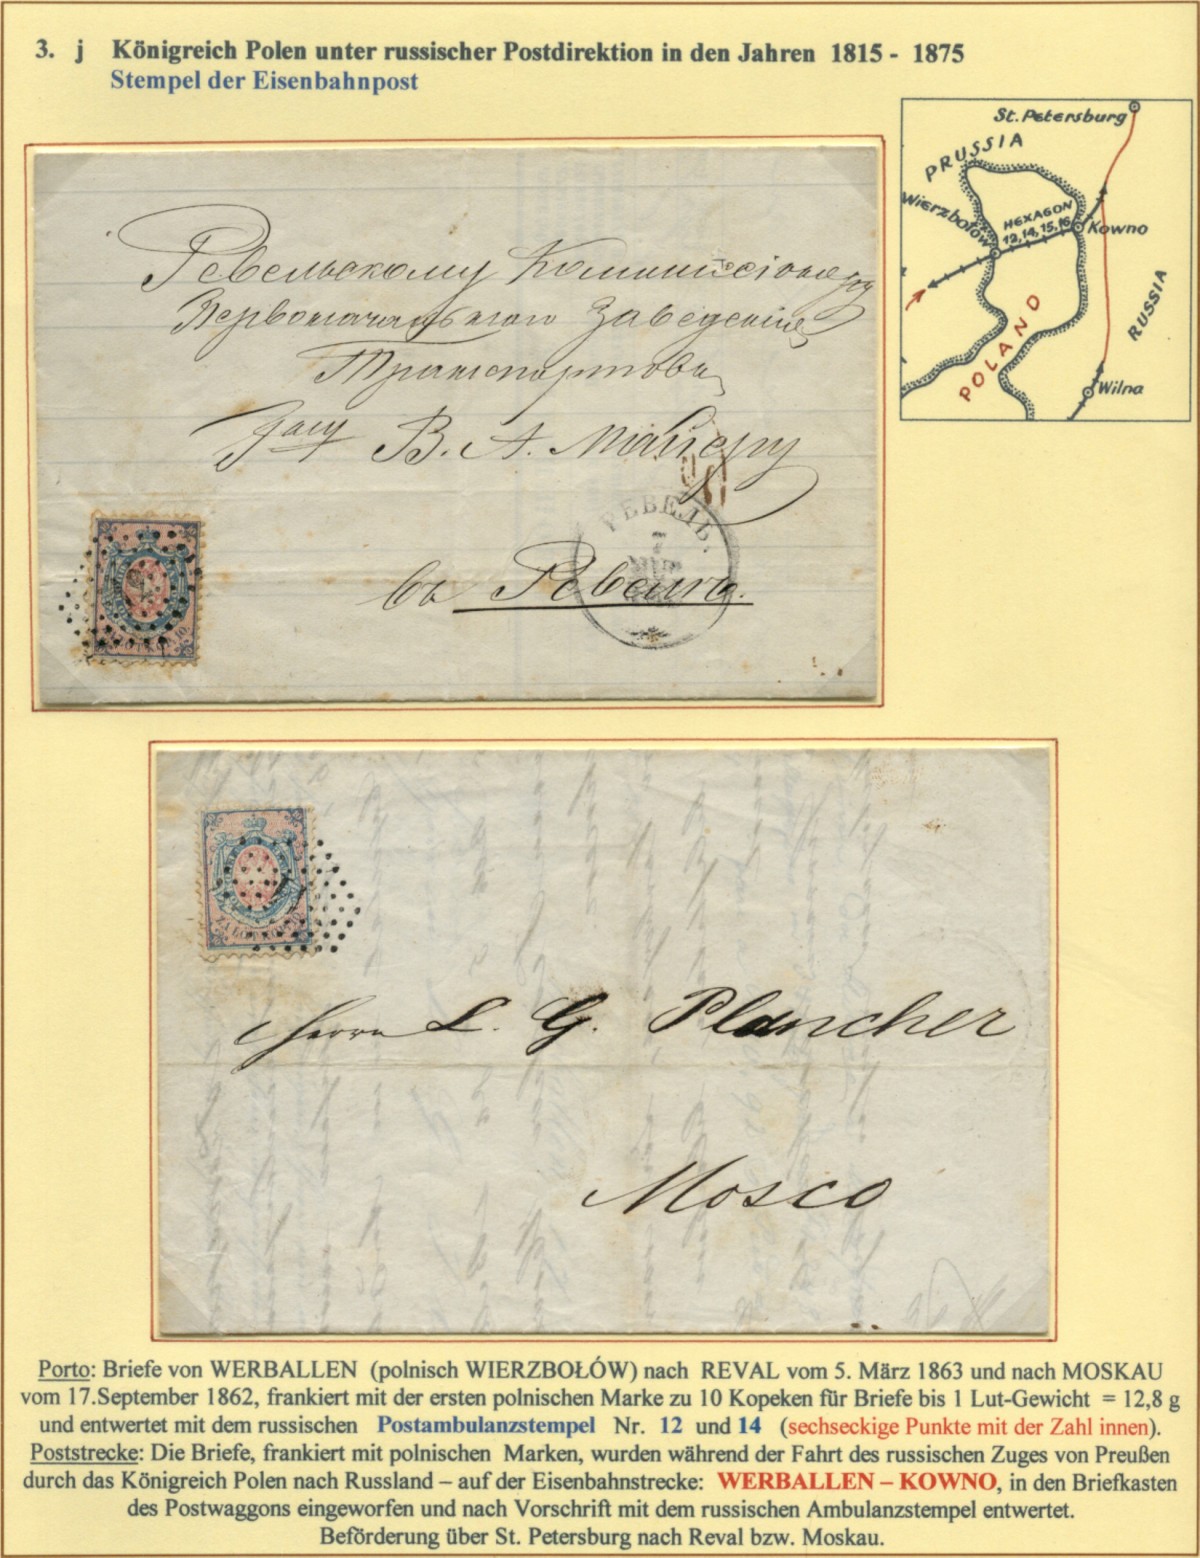 3. j Königreich Polen unter russischer Postdirektion in den Jahren 1815 - 1875
Stempel der Eisenbahnpost
St. Petersburg
PRUSSIA
Wierzbołów
HEXAGON
12,14,15,16
Kowno
POLAND
RUSSIA
Wilna
Ревельскому Коммисіонеру
Первоначальнаго Заведенія
Транспортовъ
Гану В. А. Майеру
РЕВЕЛЬ.
7
въ Ревель.
ЗА ЛОТЪ КОП. 10.
Herrn L. G. Plancher
Mosco
Porto: Briefe von WERBALLEN (polnisch WIERZBOŁÓW) nach REVAL vom 5. März 1863 und nach MOSKAU
vom 17.September 1862, frankiert mit der ersten polnischen Marke zu 10 Kopeken für Briefe bis 1 Lut-Gewicht = 12,8 g
und entwertet mit dem russischen Postambulanzstempel Nr. 12 und 14 (sechseckige Punkte mit der Zahl innen).
Poststrecke: Die Briefe, frankiert mit polnischen Marken, wurden während der Fahrt des russischen Zuges von Preußen
durch das Königreich Polen nach Russland – auf der Eisenbahnstrecke: WERBALLEN – KOWNO, in den Briefkasten
des Postwaggons eingeworfen und nach Vorschrift mit dem russischen Ambulanzstempel entwertet.
Beförderung über St. Petersburg nach Reval bzw. Moskau.